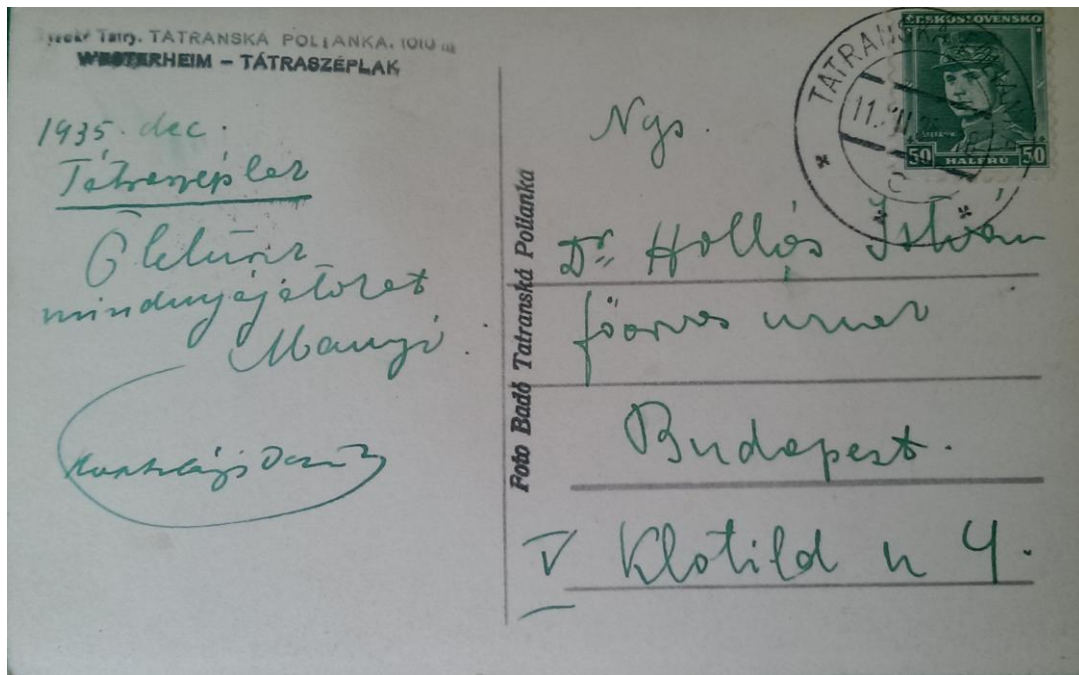 Vysoké Tatry. TATRANSKÁ POLIANKA. 1010 m
WESTERHEIM – TÁTRASZÉPLAK
1935. dec.
Tátraszéplak
Ölelünk
mindnyájatokat
Manyi
Kosztolányi Dezső
Foto Badó Tatranská Polianka
ČESKOSLOVENSKO
50 HALÉŘŮ 50
TATRANSKÁ POLIANKA
11.XII.35
Ngs.
Dr. Hollós István
főorvos urnak
Budapest.
V Klotild u 4.